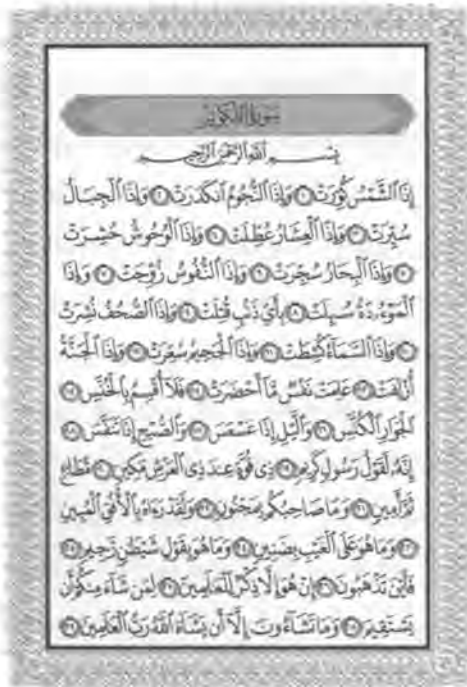 سورة التكوير
بسم الله الرحمن الرحيم
إِذَا ٱلشَّمْسُ كُوِّرَتْ ١ وَإِذَا ٱلنُّجُومُ ٱنكَدَرَتْ ٢ وَإِذَا ٱلْجِبَالُ
سُيِّرَتْ ٣ وَإِذَا ٱلْعِشَارُ عُطِّلَتْ ٤ وَإِذَا ٱلْوُحُوشُ حُشِرَتْ
٥ وَإِذَا ٱلْبِحَارُ سُجِّرَتْ ٦ وَإِذَا ٱلنُّفُوسُ زُوِّجَتْ ٧ وَإِذَا
ٱلْمَوْءُۥدَةُ سُئِلَتْ ٨ بِأَىِّ ذَنۢبٍ قُتِلَتْ ٩ وَإِذَا ٱلصُّحُفُ نُشِرَتْ
١٠ وَإِذَا ٱلسَّمَآءُ كُشِطَتْ ١١ وَإِذَا ٱلْجَحِيمُ سُعِّرَتْ ١٢ وَإِذَا ٱلْجَنَّةُ
أُزْلِفَتْ ١٣ عَلِمَتْ نَفْسٌ مَّآ أَحْضَرَتْ ١٤ فَلَآ أُقْسِمُ بِٱلْخُنَّسِ ١٥
ٱلْجَوَارِ ٱلْكُنَّسِ ١٦ وَٱلَّيْلِ إِذَا عَسْعَسَ ١٧ وَٱلصُّبْحِ إِذَا تَنَفَّسَ ١٨
إِنَّهُۥ لَقَوْلُ رَسُولٍ كَرِيمٍ ١٩ ذِى قُوَّةٍ عِندَ ذِى ٱلْعَرْشِ مَكِينٍ ٢٠ مُّطَاعٍ
ثَمَّ أَمِينٍ ٢١ وَمَا صَاحِبُكُم بِمَجْنُونٍ ٢٢ وَلَقَدْ رَءَاهُ بِٱلْأُفُقِ ٱلْمُبِينِ
٢٣ وَمَا هُوَ عَلَى ٱلْغَيْبِ بِضَنِينٍ ٢٤ وَمَا هُوَ بِقَوْلِ شَيْطَٰنٍ رَّجِيمٍ ٢٥
فَأَيْنَ تَذْهَبُونَ ٢٦ إِنْ هُوَ إِلَّا ذِكْرٌ لِّلْعَٰلَمِينَ ٢٧ لِمَن شَآءَ مِنكُمْ أَن
يَسْتَقِيمَ ٢٨ وَمَا تَشَآءُونَ إِلَّآ أَن يَشَآءَ ٱللَّهُ رَبُّ ٱلْعَٰلَمِينَ ٢٩